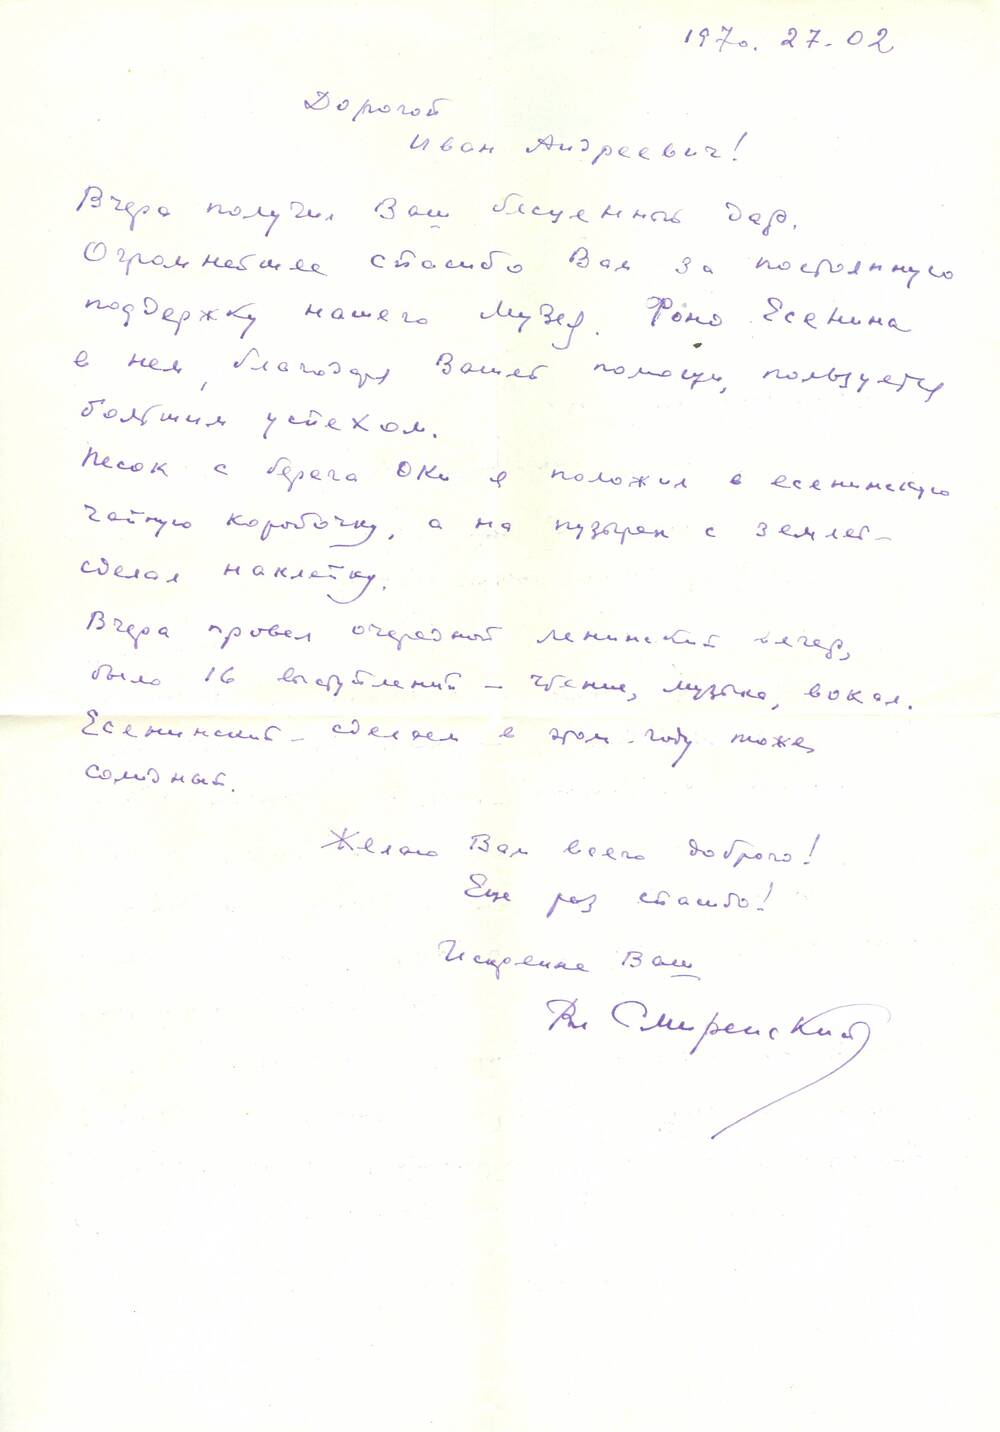 1970. 27-02
Дорогой
Иван Андреевич!
Вчера получил Ваш бесценный дар.
Огромнейшее спасибо Вам за постоянную
поддержку нашего Музея. Фонд Есенина
в нем, благодаря Вашей помощи, пользуется
большим успехом.
Песок с берега Оки я положил в есенинскую
чайную коробочку, а на пузырек с землей-
сделал наклейку.
Вчера провел очередной ленинский вечер,
было 16 выступлений – чтение, музыка, вокал.
Есенинский – сделаем в этом году тоже
солидный.
Желаю Вам всего доброго!
Еще раз спасибо!
Искренне Ваш
Вл Смиренский